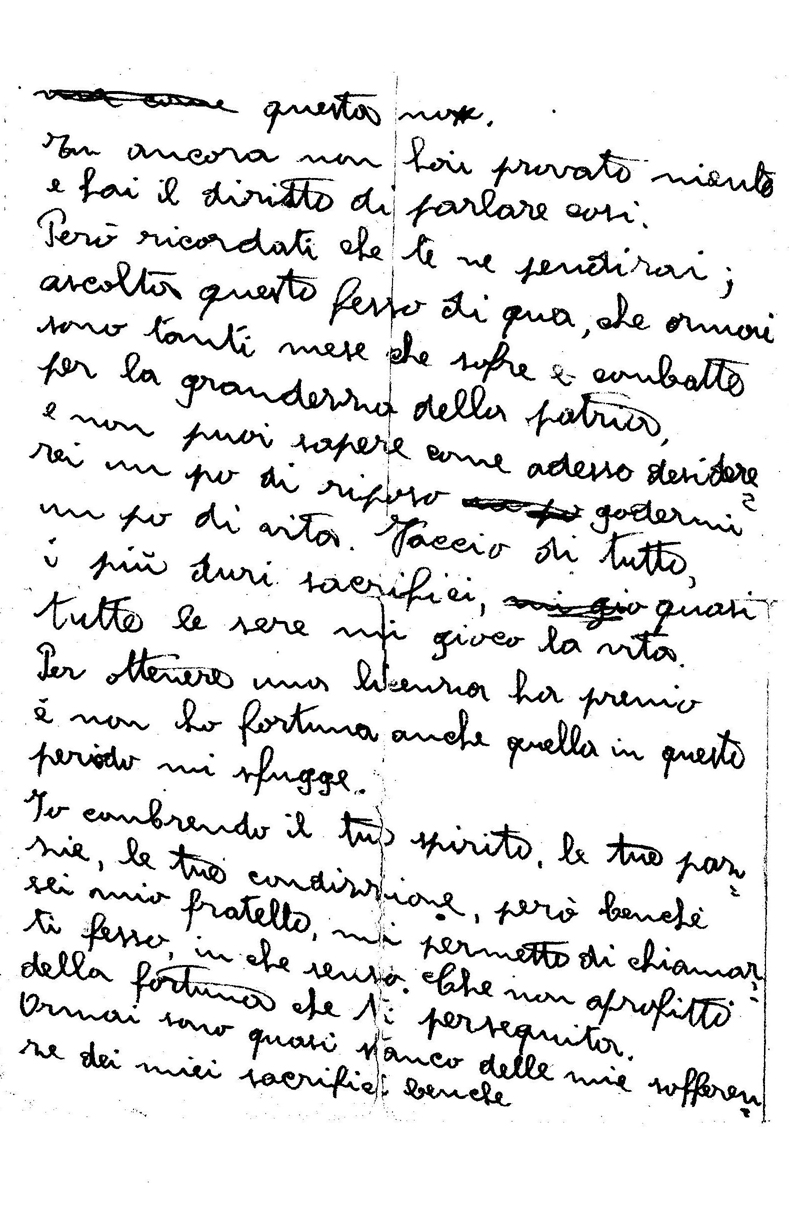 questa no.
Tu ancora non hai provato niente
e hai il diritto di parlare cosi.
Però ricordati che te ne pentirai;
ascolta questo fesso di qua, che ormai
sono tanti mese che sofre e conbatte
per la grandezza della patria,
e non puoi sapere come adesso desidere=
rei un po di riposo godermi
un po di vita. Faccio di tutto,
i più duri sacrifici, quasi
tutte le sere mi gioco la vita.
Per ottenere una licenza ha premio
è non ho fortuna anche quella in questo
periodo mi sfugge.
Io conbrendo il tuo spirito, le tue paz=
zie, le tue condizzione, però benchè
sei mio fratello, mi permetto di chiamar=
ti fesso, in che senso. Che non aprofitti
della fortuna che ti perseguita.
Ormai sono quasi stanco delle mie sofferen=
ze dei miei sacrifici benche